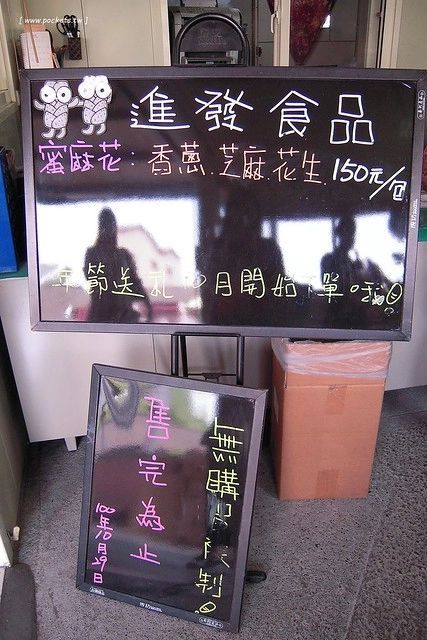 [ www.pockets.tw ]
進發食品
蜜麻花：香蔥.芝麻.花生 150元/包
年節送禮 10月開始下單
無購買限制
售完為止
100年10月29日